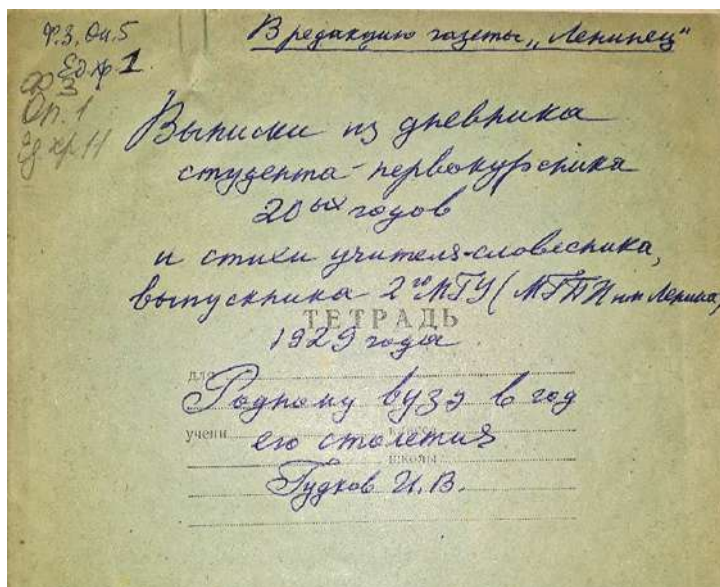 Ф.3. Оп.5
Ед.хр 1
Ф 3
Оп. 1
Ед хр 11
В редакцию газеты „Ленинец"
Выписки из дневника
студента-первокурсника
20ых годов
и стихи учителя-словесника,
выпускника 2го МГУ (МГПИ им Ленина)
ТЕТРАДЬ
1929 года
для
Родному вузу в год
учени класса
его столетия
школы
Гудков И.В.